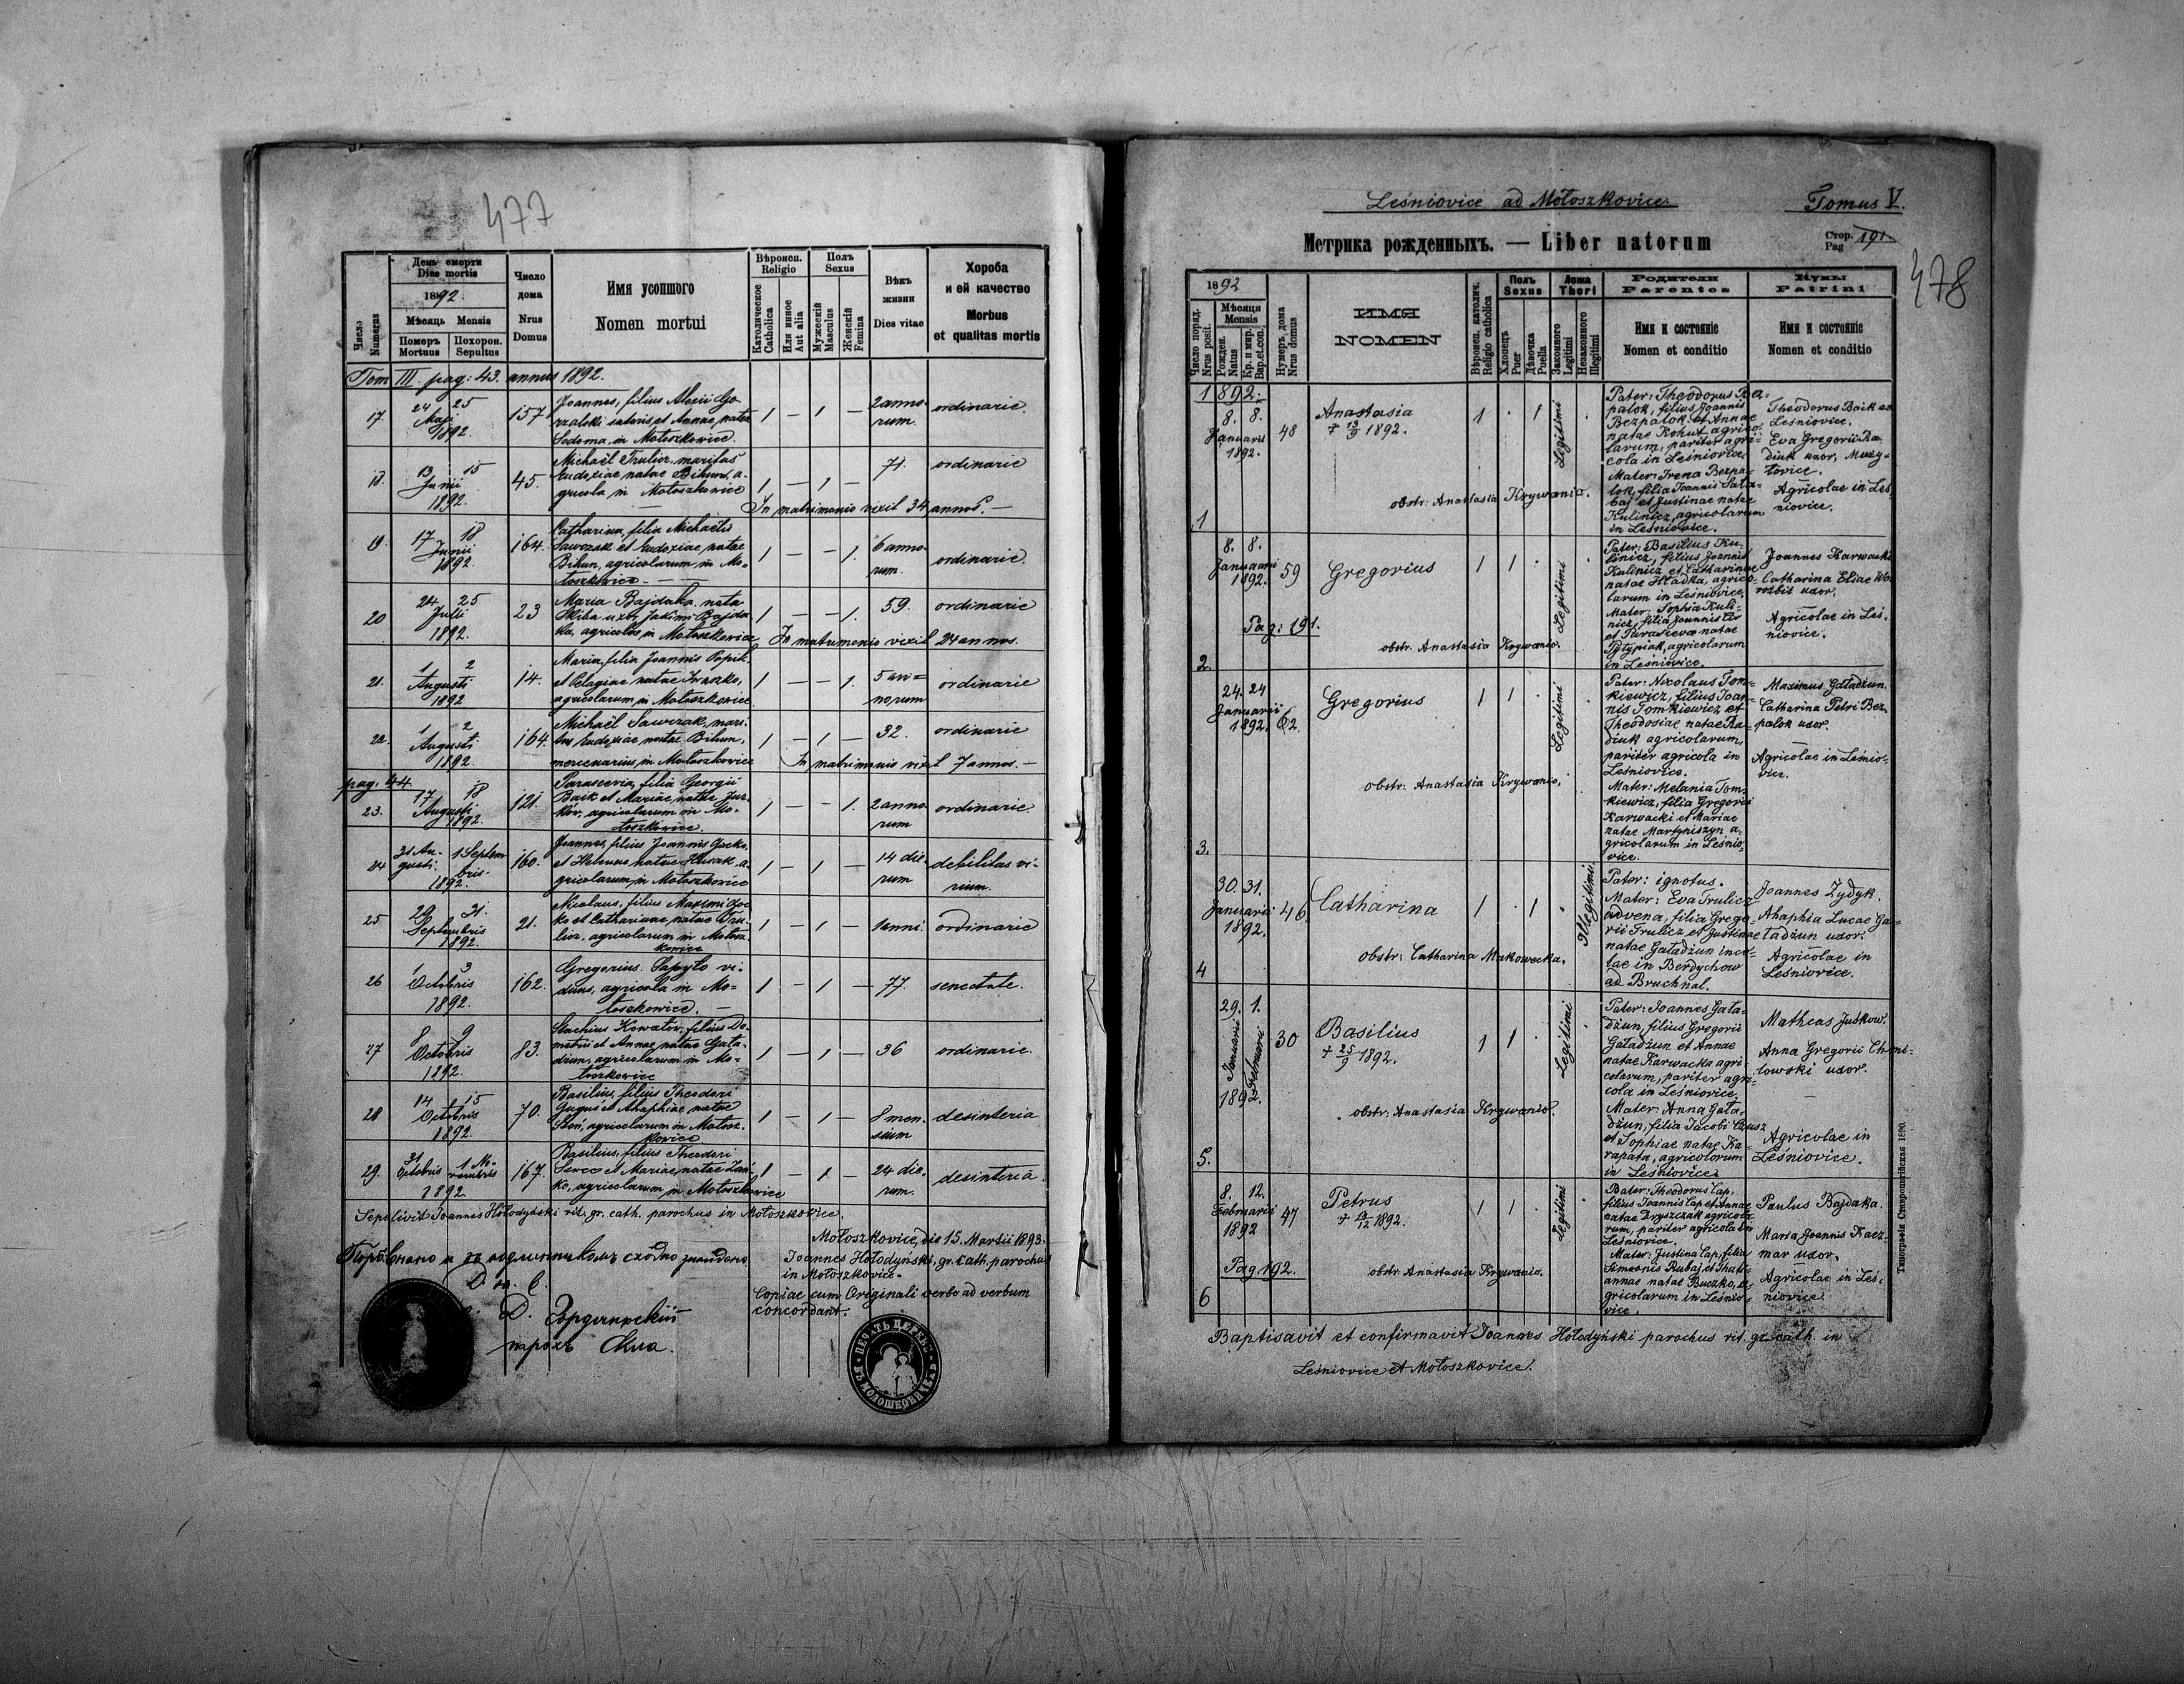 477
День смерти
Dies mortis
1892.
Мѣсяць Mensis
Померъ
Mortuus
Похорон.
Sepultus
Число
Numerus
Число
дома
Nrus
Domus
Имя усопшого
Nomen mortui
Вѣроисп.
Religio
Католическое
Catholica
Или иное
Aut alia
Полъ
Sexus
Мужескій
Masculus
Женскій
Femina
Вѣкъ
жизни
Dies vitae
Хороба
и ей качество
Morbus
et qualitas mortis
Tom III. pag: 43. annus 1892.
17. 24 25 Maj 1892. 157
Joannes, filius Alexii Go-
rzalski satoris et Annae, natae
Sodoma, in Mołoszkowice.
1 – 1 – 2 anno-
rum. ordinarie.
18. 13 15 Junii 1892. 45.
Michaël Trulicz, maritus
Eudoxiae natae Bihun, a-
gricola in Mołoszkowice
1 – 1 – 71. ordinarie
In matrimonio vixit 34 annos. –
19. 17 18 Junii 1892. 164.
Catharina, filia Michaëlis
Sawczak et Eudoxiae natae
Bihun, agricolarum, in Mo-
łoszkowice.
1 – – 1. 6 anno-
rum ordinarie.
20 24 25 Julii 1892. 23
Maria Bajdała, nata
Skiba uxor Joakimi Bajda-
ła, agricolae in Mołoszkowice
1 – – 1. 59. ordinarie
In matrimonio vixit 24 annos.
21. 1 2 Augusti 1892 14.
Maria, filia Joannis Popik
et Pelagiae natae Iwaszko,
agricolarum, in Mołoszkowice
1 – – 1. 5 an=
norum ordinarie
22. 1 2 Augusti 1892. 164.
Michaël Sawczak, mari-
tus Eudoxiae natae Bihun,
mercenarius, in Mołoszkowice
1 – 1 – 32. ordinarie
In matrimonio vixit 7 annos. –
pag. 44
23. 17 18 Augusti 1892. 121.
Parascevia, filia Georgii
Baik et Mariae natae Jur-
kow, agricolarum in Mo-
łoszkowice.
1 – – 1. 2 anno-
rum ordinarie
24 31 Au-
gusti. 1 Septem-
bris 1892. 160.
Joannes, filius Joannis Gocko,
et Helenae natae Husak, a-
gricolarum, in Mołoszkowice
1 – 1 – 14 die-
rum debilitas vi-
rium.
25 29 31. Septembris 1892. 21.
Nicolaus, filius Maximi Goc-
ko et Catharinae, natae Tru-
licz, agricolarum in Mołosz-
kowice
1 – 1 – 1 anni. ordinarie
26 1 3 Octobris 1892. 162.
Gregorius Sapyło vi-
duus, agricola in Mo-
łoszkowice. –
1 – 1 – 77. senectute.
27 8 9 Octobris 1892. 83.
Stachius Kowalow, filius De-
metrii et Annae, natae Gała-
dżun, agricolarum in Mo-
łoszkowice
1 – 1 – 36 ordinarie.
28 14 15 Octobris 1892. 70.
Basilius, filius Theodori
Guguś et Ahaphiae natae
Słoń, agricolarum in Mołosz-
kowice
1 – 1 – 8 men-
sium desinteria
29. 31 Octobris 1 No-
vembris 1892. 167.
Basilius, filius Theodori
Senco et Mariae, natae Zań-
ko, agricolarum in Mołoszkowice
1 – 1 – 24 die-
rum. desinteria.
Sepelivit Joannes Hołodyński rit. gr. cath. parochus in Mołoszkowice.
Mołoszkovice, die 15. Martii 1893.
Joannes Hołodyński, gr. cath. parochus
in Mołoszkovice.
Copiae cum Originali verbo ad verbum
concordant.
парохъ
ПЕЧАТЬ ЦЕРКВИ
478
Leśniovice ad Mołoszkovice. Tomus V.
Метрика рожденныхъ. — Liber natorum
Стор.
Pag 191
1892
Число поряд.
Nrus posit.
Мѣсяця
Mensis
Рожден.
Natus
Кр. и мир.
Bap.et.con.
Нумеръ дома
Nrus domus
ИМЯ
NOMEN
Вѣроисп. католич.
Religio catholica
Полъ
Sexus
Хлопецъ
Puer
Дѣвочка
Puella
Ложа
Thori
Законного
Legitimi
Незаконного
Illegitimi
Родители
Parentes
Имя и состояніе
Nomen et conditio
Кумы
Patrini
Имя и состояніе
Nomen et conditio
1892.
1 8. 8. Januarii 1892. 48
Anastasia
+ 13/9 1892.
1 · 1 Legitimi
obstr: Anastasia Krywanio.
Pater: Theodorus Bez-
palok, filius Joannis
Bezpalok et Annae
natae Kohut agrico-
larum, pariter agri-
cola in Leśniovice.
Mater: Irena Bezpa-
lok, filia Joannis Sała-
baj et Justinae natae
Kulinicz, agricolarum
in Leśniovice.
Theodorus Baik ex
Leśniovice.
Eva Gregorii Ra-
diuk uxor, Muży-
łovice.
Agricolae in Leś-
niovice.
2. 8. 8. Januarii 1892. 59
Gregorius
1 1 · Legitimi
Pag: 191.
obstr. Anastasia Krywanio.
Pater: Basilius Ku-
linicz, filius Joannis
Kulinicz et Catharinae
natae Hładka, agrico-
larum in Leśniovice.
Mater: Sophia Kuli-
nicz, filia Joannis
et Parascevae natae
agricolarum
in Leśniovice.
Joannes Karwacki
Catharina Eliae Wo-
robis uxor.
Agricolae in Leś-
niovice.
3. 24. 24 Januarii 1892. 62
Gregorius
1 1 · Legitimi
obstr: Anastasia Krywanio.
Pater: Nicolaus Tom-
kiewicz, filius Joan-
nis Tomkiewicz et
Theodosiae natae Ra-
diuk agricolarum,
pariter agricola in
Leśniovice.
Mater: Melania Tom-
kiewicz, filia Gregorii
Karwacki et Mariae
natae Martyniszyn a-
gricolarum in Leśnio-
vice.
Maximus Gaładżun.
Catharina Petri Bez-
palok uxor.
Agricolae in Leśnio-
vice.
4 30. 31. Januarii 1892. 46
Catharina
1 · 1 Illegitimi
obstr: Catharina Makowecka.
Pater: ignotus.
Mater: Eva Trulicz
advena, filia Grego-
rii Trulicz et Justinae
natae Gaładżun inco-
lae in Berdychow
ad Bruchnal.
Joannes Żydyk.
Ahaphia Lucae Ga-
ładżun uxor.
Agricolae in
Leśniovice.
5. 29. 1. Januarii Februarii 1892. 30
Basilius
+ 25/9 1892.
1 1 · Legitimi
obstr: Anastasia Krywanio.
Pater: Joannes Gała-
dżun, filius Gregorii
Gaładżun et Annae
natae Karwacka agri-
colarum, pariter agri-
cola in Leśniovice.
Mater: Anna Gała-
dżun, filia Jacobi
et Sophiae natae Ka-
rapata, agricolorum
in Leśniovice.
Matheas Juśkow.
Anna Gregorii Chmi-
lowski uxor.
Agricolae in
Leśniovice.
6 8. 12. Februarii 1892 47
Petrus
1892.
1 1 · Legitimi
Pag. 192.
obstr: Anastasia Krywanio.
Pater: Theodorus Cap,
filius Joannis Cap et Annae
natae Dryszczak agricola-
rum, pariter agricola in
Leśniovice.
Mater: Justina Cap, filia
Simeonis Rubaj et Thati-
annae natae Buczko, a-
gricolarum in Leśnio-
vice.
Paulus Bajdaka.
Maria Joannis Kacz-
mar uxor.
Agricolae in Leś-
niovice.
Baptisavit et confirmavit Joannes Hołodyński parochus rit. gr. cath. in
Leśniovice et Mołoszkovice.
Типографія Ставропигійская 1890.